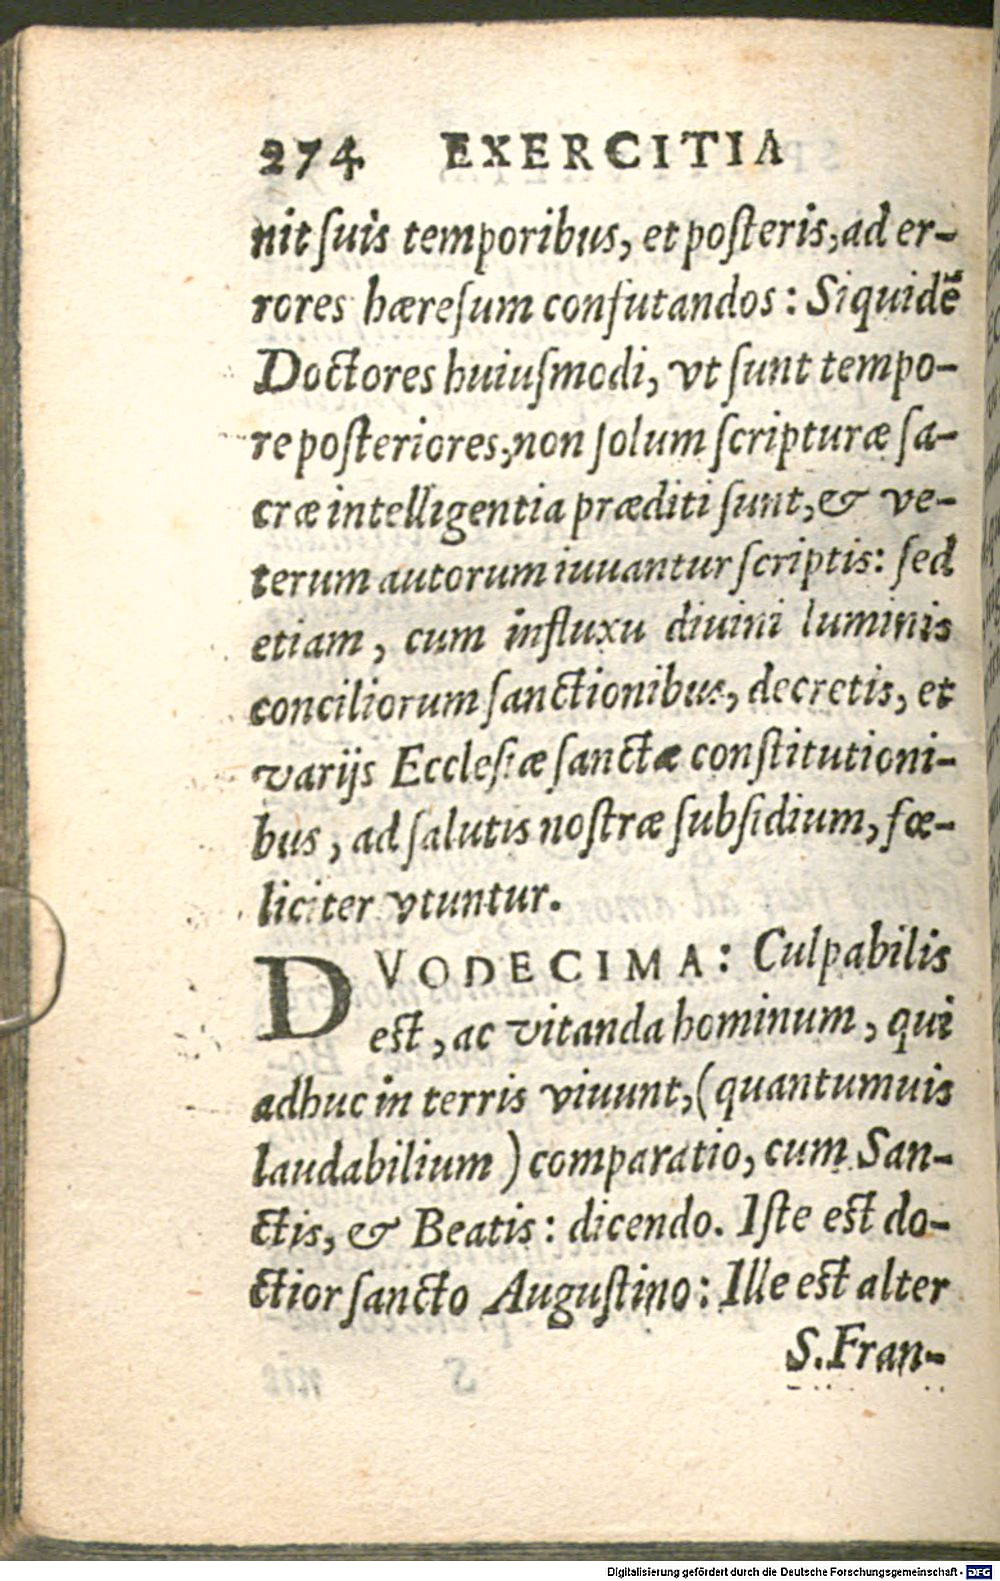 274 EXERCITIA
nit ſuis temporibus, et poſteris, ad er-
rores hæreſum confutandos: Siquidẽ
Doctores huiuſmodi, vt ſunt tempo-
re poſteriores, non ſolum ſcripturæ ſa-
cræ intelligentia præditi ſunt, & ve-
terum autorum iuuantur ſcriptis: ſed
etiam, cum influxu diuini luminis
conciliorum ſanctionibus, decretis, et
varijs Eccleſiæ ſanctæ conſtitutioni-
bus, ad ſalutis noſtræ ſubſidium, fœ-
liciter vtuntur.
DVODECIMA: Culpabilis
eſt, ac vitanda hominum, qui
adhuc in terris viuunt, (quantumuis
laudabilium) comparatio, cum San-
ctis, & Beatis: dicendo. Iſte eſt do-
ctior ſancto Auguſtino: Ille eſt alter
S. Fran-
Digitalisierung gefördert durch die Deutsche Forschungsgemeinschaft - DFG